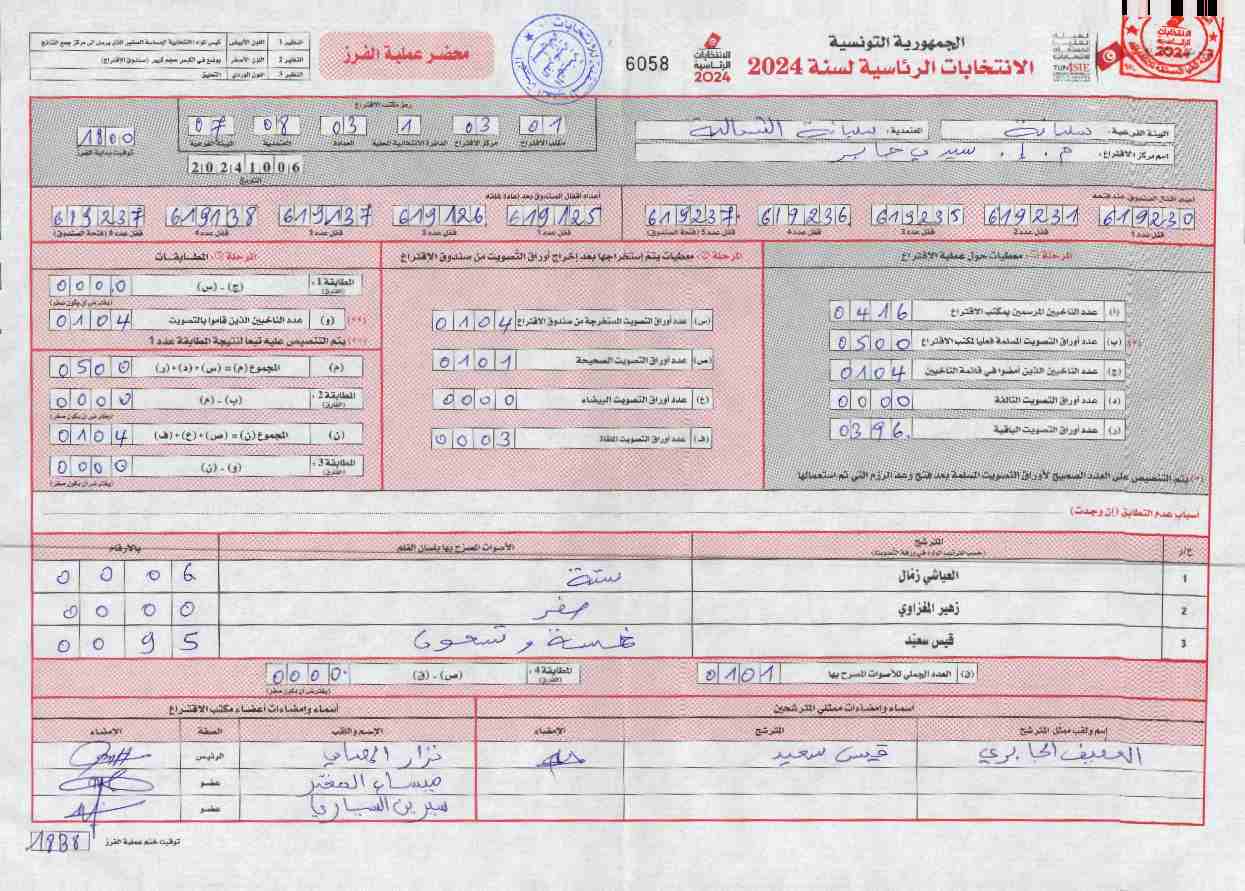 الجمهورية التونسية
الانتخابات الرئاسية لسنة 2024
الانتخابات الرئاسية 2024
6058
محضر عملية الفرز
النظير 1 اللون الأبيض
النظير 2 اللون الأصفر يوضع في الكيس حجم كبير (صندوق الاقتراع)
النظير 3 اللون الوردي التعليق
الهيئة الفرعية: سليانة
المعتمدية: سليانة الشمالية
اسم مركز الاقتراع: م. إ. سيدي جابر
رمز مكتب الاقتراع
01 03 1 03 08 07
مكتب الاقتراع مركز الاقتراع الدائرة الانتخابية المحلية العمادة المعتمدية الهيئة الفرعية
20241006
التاريخ
1800
توقيت بداية الفرز
أعداد أقفال الصندوق عند فتحه
619230 619231 619235 619236 619237
قفل عدد 1 قفل عدد 2 قفل عدد 3 قفل عدد 4 قفل عدد 5 (فتحة الصندوق)
أعداد أقفال الصندوق بعد إعادة غلقه
619125 619126 619137 619138 619237
قفل عدد 1 قفل عدد 2 قفل عدد 3 قفل عدد 4 قفل عدد 5 (فتحة الصندوق)
المرحلة 1: معطيات حول عملية الاقتراع
(أ) عدد الناخبين المرسمين بمكتب الاقتراع 0416
(*) (ب) عدد أوراق التصويت المسلمة فعليا لمكتب الاقتراع 0500
(ج) عدد الناخبين الذين أمضوا في قائمة الناخبين 0104
(د) عدد أوراق التصويت التالفة 0000
(ر) عدد أوراق التصويت الباقية 0396
(*) يتم التنصيص على العدد الصحيح لأوراق التصويت المسلمة بعد فتح وعد الرزم التي تم استعمالها
المرحلة 2: معطيات يتم إستخراجها بعد إخراج أوراق التصويت من صندوق الاقتراع
(س) عدد أوراق التصويت المستخرجة من صندوق الاقتراع 0104
(ص) عدد أوراق التصويت الصحيحة 0101
(ع) عدد أوراق التصويت البيضاء 0000
(ف) عدد أوراق التصويت الملغاة 0003
المرحلة 3: المطابقات
المطابقة 1: (الفارق) (ج) - (س) 0000
(يفترض أن يكون صفر)
(**) (و) عدد الناخبين الذين قاموا بالتصويت 0104
(**) يتم التنصيص عليه تبعا لنتيجة المطابقة عدد 1
(م) المجموع (م) = (س) + (د) + (ر) 0500
المطابقة 2: (الفارق) (ب) - (م) 0000
(يفترض أن يكون صفر)
(ن) المجموع (ن) = (ص) + (ع) + (ف) 0104
المطابقة 3: (الفارق) (و) - (ن) 0000
(يفترض أن يكون صفر)
أسباب عدم التطابق (إن وجدت)
ع/ر المترشح الأصوات المصرح بها بلسان القلم بالأرقام
(حسب الترتيب الوارد في ورقة التصويت)
1 العياشي زمال ستة 0006
2 زهير المغزاوي صفر 0000
3 قيس سعيّد خمسة و تسعون 0095
(ق) العدد الجملي للأصوات المصرح بها 0101
المطابقة 4: (الفارق) (ص) - (ق) 0000
(يفترض أن يكون صفر)
أسماء وإمضاءات ممثلي المترشحين أسماء وإمضاءات أعضاء مكتب الاقتراع
إسم ولقب ممثل المترشح المترشح الإمضاء الإسم واللقب الصفة الإمضاء
الجابري قيس سعيد نزار الرئيس
ميساء عضو
سيرين عضو
توقيت ختم عملية الفرز 1838